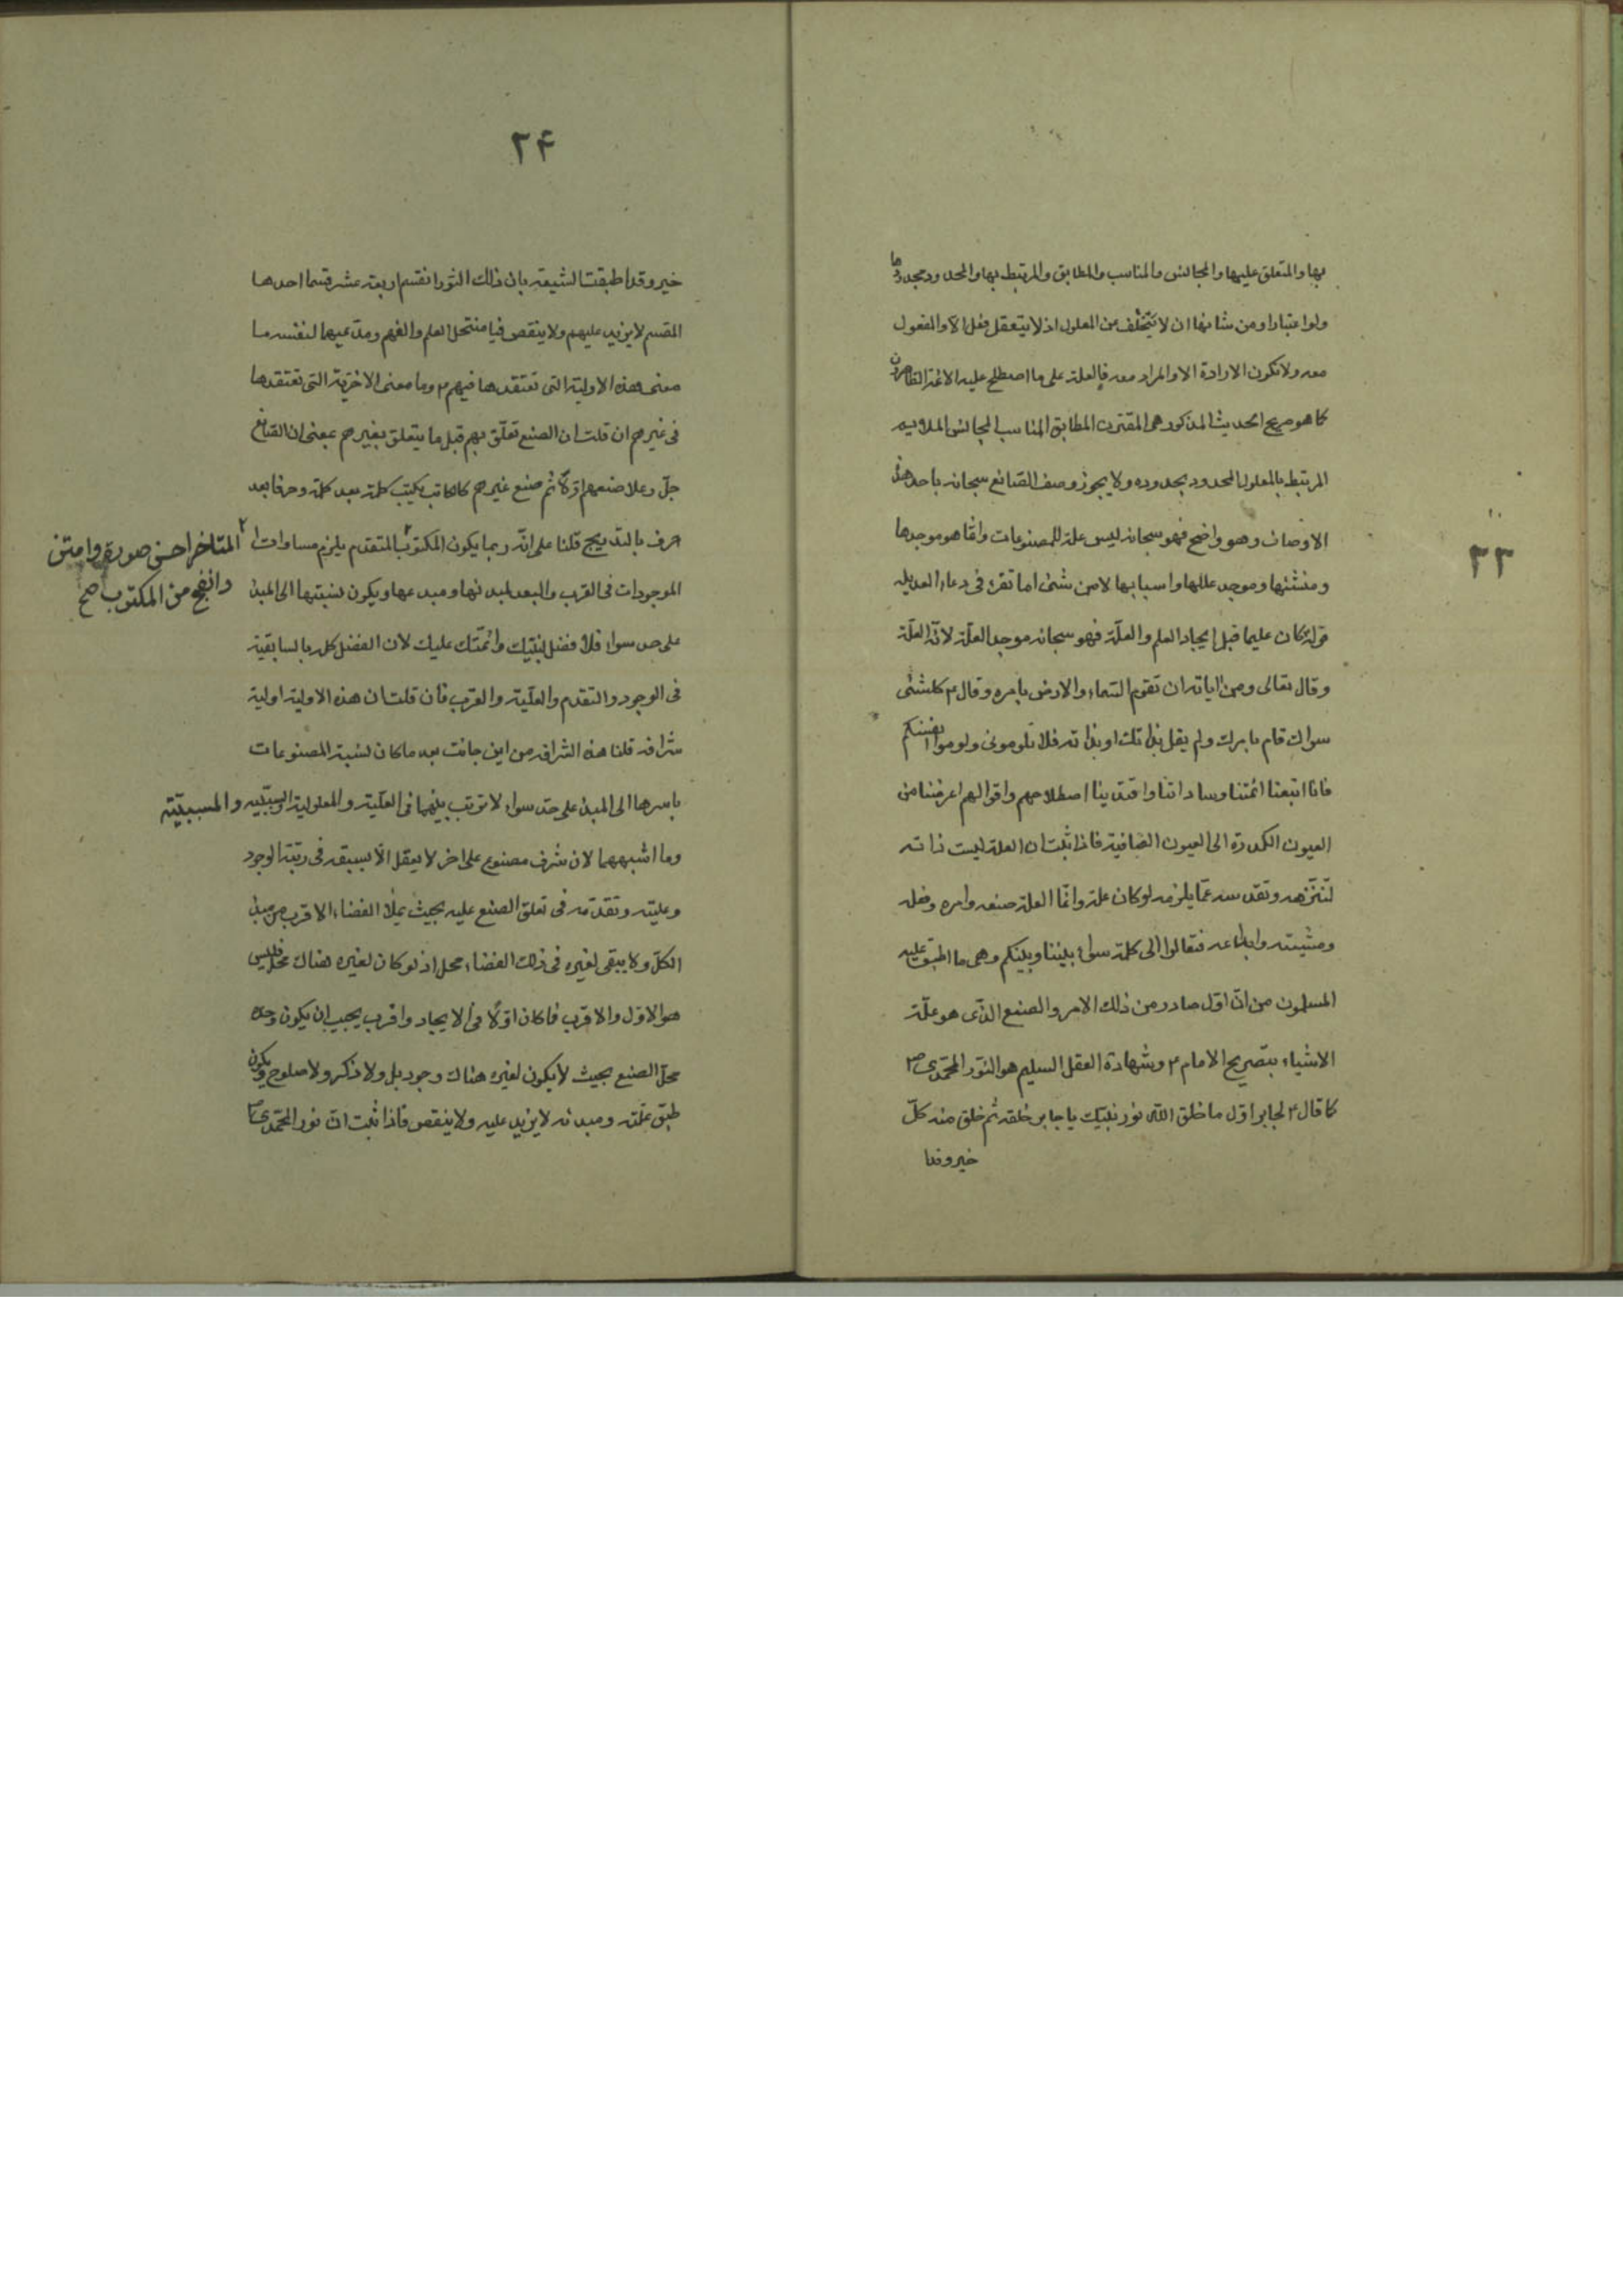 ۲۳
بها والمتعلق عليها والمجانس والمناسب والمطابق والمرتبط بها والمحدود بحدودها
ولو اعتبارا ومن شانها ان لا يتخلف عن المعلول اذ لا يتعقل فعل الا والمفعول
معه ولا تكون الارادة الا والمراد معه فالعلة على ما اصطلح عليه الائمة الطاهرون
كما هو صريح الحديث المذكور هى المقترن المطابق المناسب المجانس الملايم
المرتبط بالمعلول المحدود بحدوده ولا يجوز وصف الصانع سبحانه باحد هذه
الاوصاف وهو واضح فهو سبحانه ليس علة للمصنوعات وانما هو موجدها
ومنشئها وموجد عللها واسبابها لا من شئ اما تقرء فى دعاء العديله
قوله كان عليما قبل ايجاد العلم والعلّة فهو سبحانه موجد العلّة لا انّه العلّة
وقال تعالى ومن اياته ان تقوم السّماء والارض بامره وقال ع كلشئ
سواك قام بامرك ولم يقل بذاتك او بذاته فلا تلومونى ولوموا انفسكم
فانّا اتبعنا ائمتنا وساداتنا واقتدينا اصطلاحهم واقوالهم اعرضنا من
العيون الكدرة الى العيون الصّافية فاذا ثبت ان العلة ليست ذاته
لتنزّهه وتقدسه عمّا يلزمه لوكان علة وانّما العلة صنعه وامره وفعله
ومشيته وابداعه فتعالوا الى كلمة سواء بيننا وبينكم وهى ما اطبق عليه
المسلمون من انّ اوّل صادر من ذلك الامر والصنع الذّى هو علّة
الاشياء بتصريح الامام ع وشهادة العقل السليم هو النّور المحمّدى ص
كما قال ع لجابر اوّل ما خلق اللّه نور نبيّك يا جابر خلقه ثم خلق منه كلّ
خير وقد
۲۴
خير وقد اطبقت الشيعة بان ذلك النّور انقسم اربعة عشر قسما احدها
المقسم لا يزيد عليهم ولا ينقص فيا منتحل العلم والفهم ومدّعيهما لنفسه ما
معنى هذه الاولية التى تعتقدها فيهم ع وما معنى الاخريّة التى تعتقدها
فى غيرهم ان قلت ان الصنع تعلّق بهم قبل ما يتعلق بغيرهم بمعنى ان الصّانع
جلّ وعلا صنعهم اوّلا ثم صنع غيرهم كالكاتب يكتب كلمة بعد كلمة وحرفا بعد
حرف بالتدريج قلنا على انّه ربما يكون المكتوب المتقدم يلزم مساوات
المتاخر احسن صورة وامتن
وانفع من المكتوب صح
الموجودات فى القرب والبعد لمبدئها ومبدعها ويكون نسبتها الى المبدء
على حد سواء فلا فضل لنبيّك وائمّتك عليك لان الفضل كله بالسابقية
فى الوجود والتقدم والعلّية والقرب فان قلت ان هذه الاولية اولية
شرافة قلنا هذه الشرافه من اين جائت بعد ما كان نسبة المصنوعات
باسرها الى المبدء على حدّ سواء لا ترتب بينهما فى العلّية والمعلولية والسببيّه والمسببيّة
وما اشبههما لان شرف مصنوع على اخر لا يعقل الّا بسبقه فى رتبة الوجود
وعليته وتقدّمه فى تعلق الصنع عليه بحيث يملأ الفضاء الاقرب من مبدء
الكلّ ولا يبقى لغيره فى ذلك الفضاء محل اذ لو كان لغيره هناك محل فليس
هو الاوّل والاقرب فما كان اوّلا فى الايجاد واقرب يجب ان يكون وحده
محلّ الصنع بحيث لا يكون لغيره هناك وجود بل ولا ذكر ولا صلوح ويكون
طبق علّته ومبدئه لا يزيد عليه ولا ينقص فاذا ثبت انّ نور المحمّدى ص